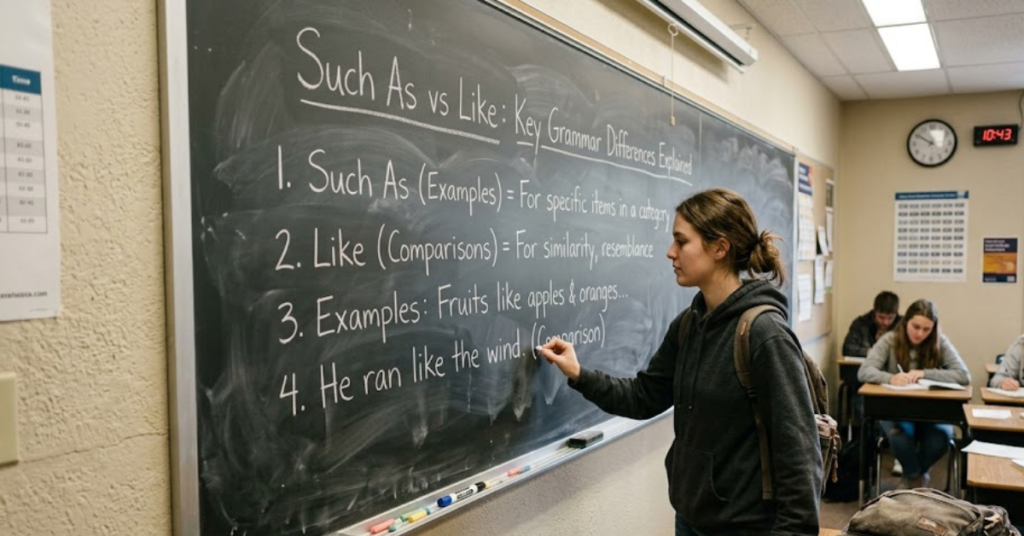 Such As vs Like: Key Grammar Differences Explained
1. Such As (Examples) = For specific items in a category
2. Like (Comparisons) = For similarity, resemblance
3. Examples: Fruits like apples & oranges...
4. He ran like the wind. (Comparison)
10:43